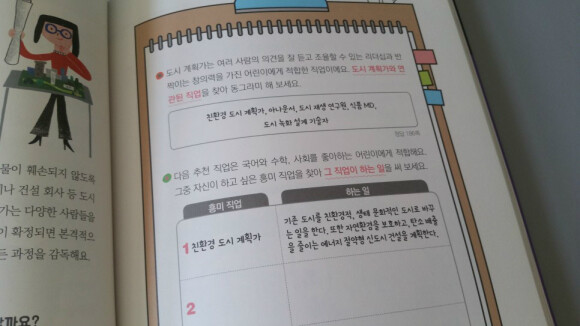 도시 계획가는 여러 사람의 의견을 잘 듣고 조율할 수 있는 리더십과 반
짝이는 창의력을 가진 어린이에게 적합한 직업이에요. 도시 계획가와 연
관된 직업을 찾아 동그라미 해 보세요.
친환경 도시 계획가, 아나운서, 도시 재생 연구원, 식품 MD,
도시 녹화 설계 기술자
정답 198쪽
다음 추천 직업은 국어와 수학, 사회를 좋아하는 어린이에게 적합해요.
그중 자신이 하고 싶은 흥미 직업을 찾아 그 직업이 하는 일을 써 보세요.
흥미 직업
하는 일
1 친환경 도시 계획가
기존 도시를 친환경적, 생태 문화적인 도시로 바꾸
는 일을 한다. 또한 자연환경을 보호하고, 탄소 배출
을 줄이는 에너지 절약형 신도시 건설을 계획한다.
2
물이 훼손되지 않도록
나 건설 회사 등 도시
가는 다양한 사람들을
이 확정되면 본격적으
든 과정을 감독해요.
까요?